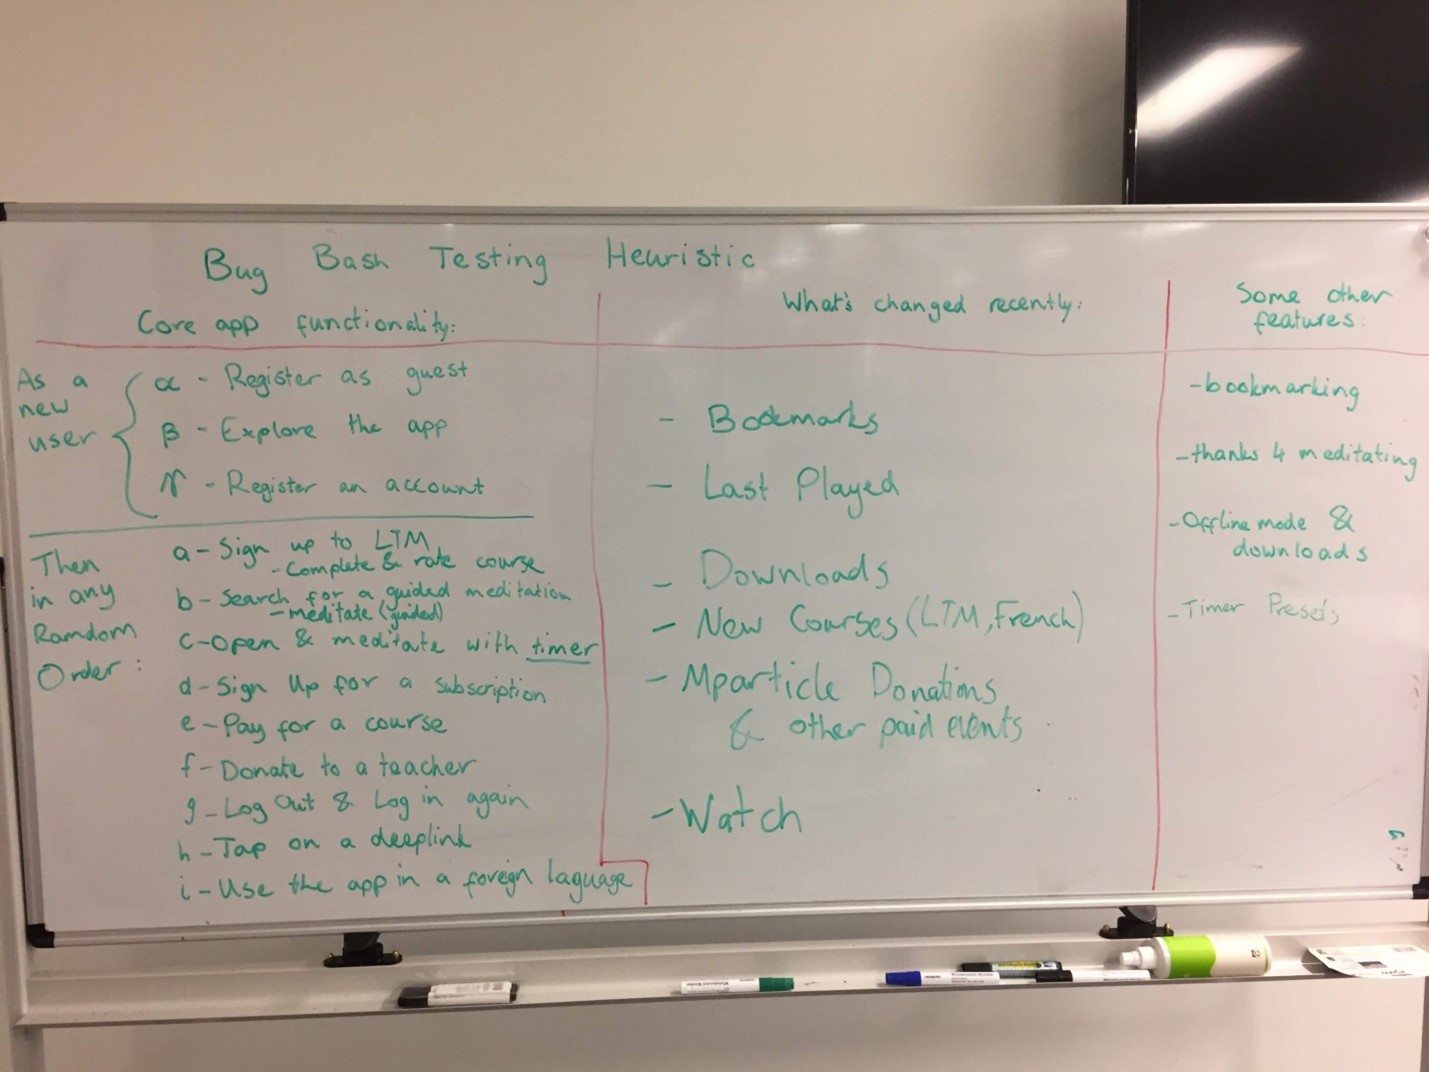 Bug Bash Testing Heuristic
Core app functionality:
As a
new
user
α - Register as guest
β - Explore the app
γ - Register an account
Then
in any
Random
Order:
a - Sign up to LTM
- Complete & rate course
b - Search for a guided meditation
- meditate (guided)
c - Open & meditate with timer
d - Sign Up for a subscription
e - Pay for a course
f - Donate to a teacher
g - Log Out & Log in again
h - Tap on a deeplink
i - Use the app in a foreign laguage
What's changed recently:
- Bookmarks
- Last Played
- Downloads
- New Courses (LTM, French)
- Mparticle Donations
& other paid events
- Watch
Some other
features:
- bookmarking
- thanks 4 meditating
- Offline mode &
downloads
- Timer Presets